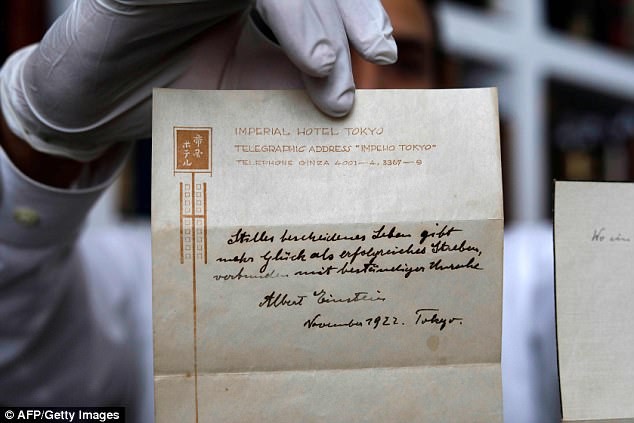 帝国
ホテル
IMPERIAL HOTEL TOKYO
TELEGRAPHIC ADDRESS "IMPEHO TOKYO"
TELEPHONE GINZA 4001–4, 3367–9
Stilles bescheidenes Leben gibt
mehr Glück als erfolgreiches Streben,
verbunden mit beständiger Unruhe
Albert Einstein
November 1922. Tokyo.
Wo ein
© AFP/Getty Images